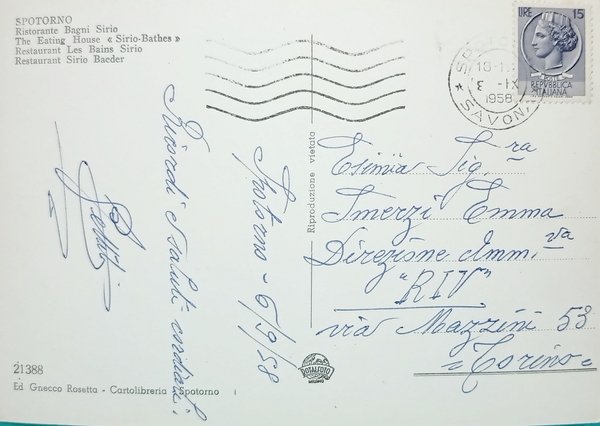 SPOTORNO
Ristorante Bagni Sirio
The Eating House « Sirio-Bathes »
Restaurant Les Bains Sirio
Restaurant Sirio Baeder
LIRE 15
REPVBBLICA
ITALIANA
1958
SAVONA
Riproduzione vietata
Spotorno - 6/9/58
Ricordi e saluti cordiali.
Esimia Sig.ra
Smerzi Emma
Direzione Amm.va
"RIV"
via Mazzini 53
Torino
ROTALFOTO
MILANO
21388
Ed Gnecco Rosetta - Cartolibreria - Spotorno